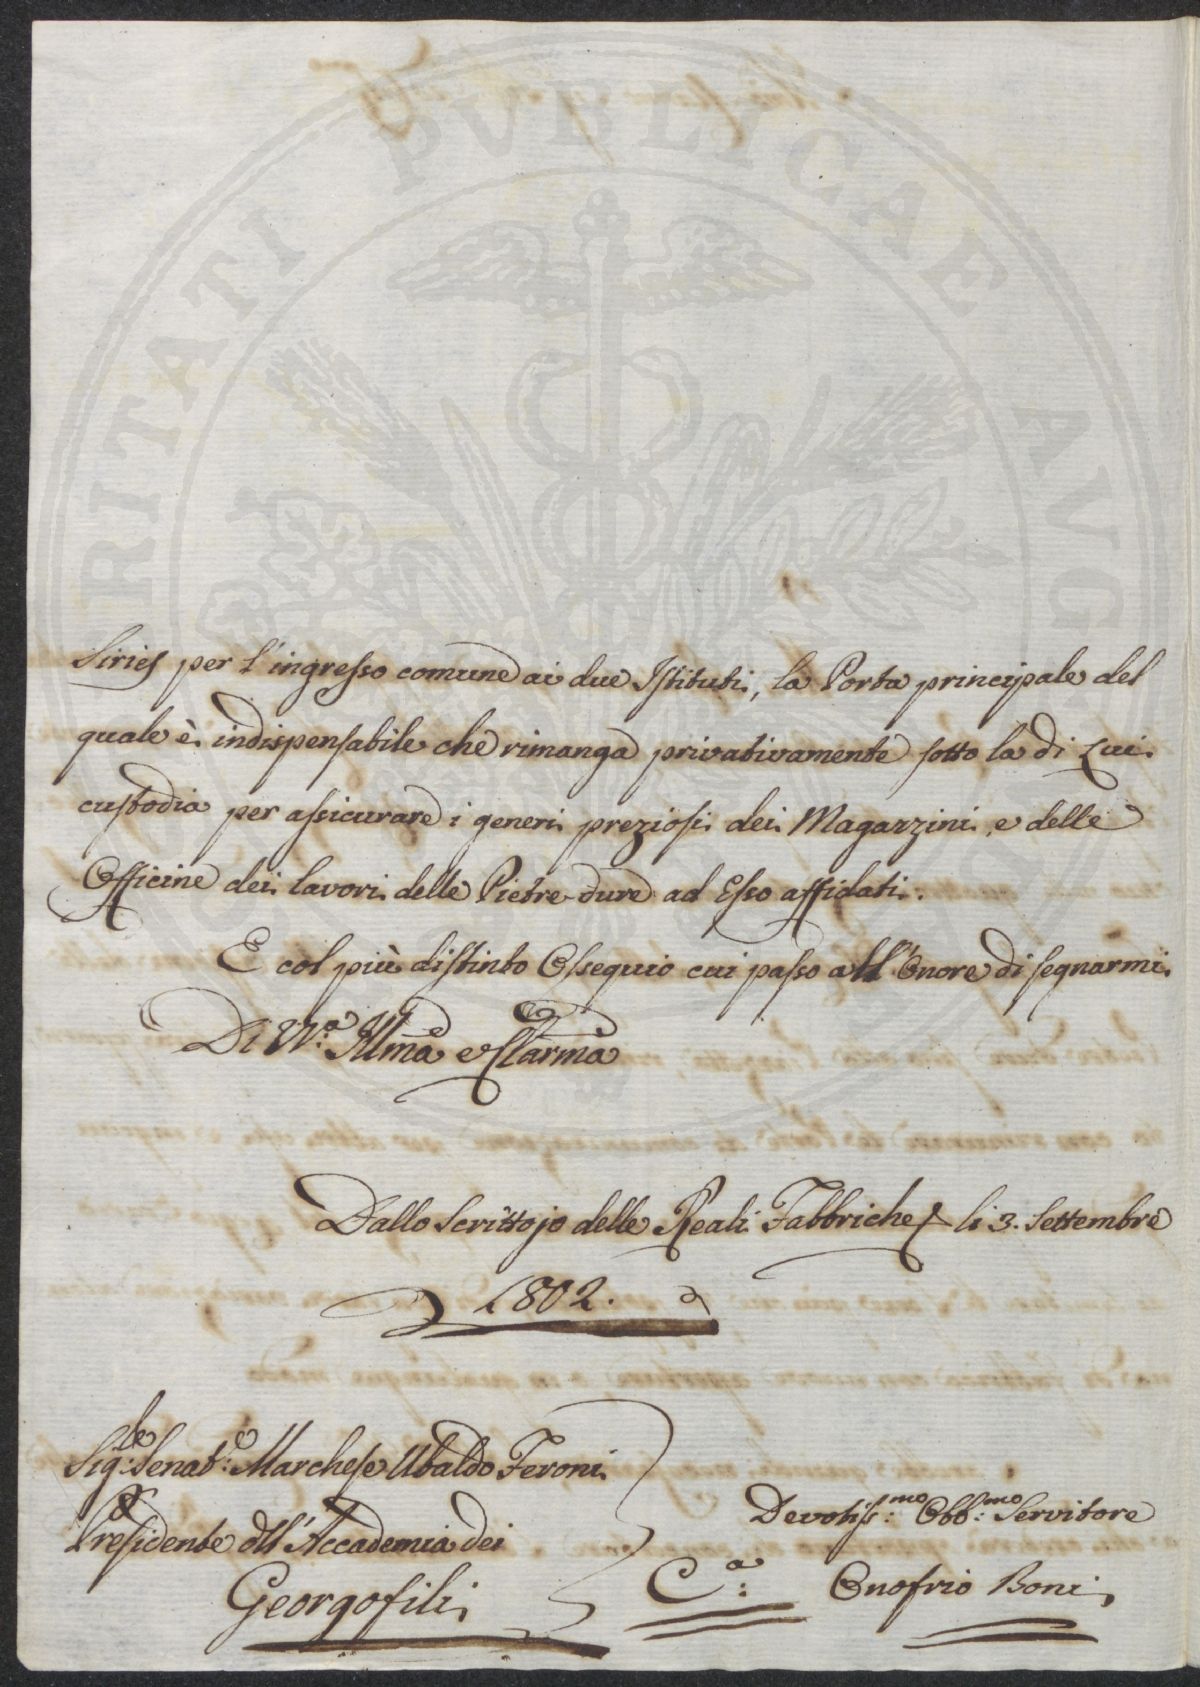 PROSPERITATI PUBLICAE AUGENDAE
Siries per l'ingresso comune ai due Istituti, la Porta principale del
quale è indispensabile che rimanga privativamente sotto la di Lui
custodia per assicurare i generi preziosi dei Magazzini, e delle
Officine dei lavori delle Pietre dure ad Esso affidati.
E col più distinto Ossequio cui passo all'Onore di segnarmi
Di V.ª Illma e Clarma
Dallo Scrittojo delle Reali Fabbriche li 3. Settembre
1802.
Sig:re Senat:e Marchese Ubaldo Feroni
Presidente dell'Accademia dei
Georgofili
Devotiss:mo Obb:mo Servitore
C:a Onofrio Boni